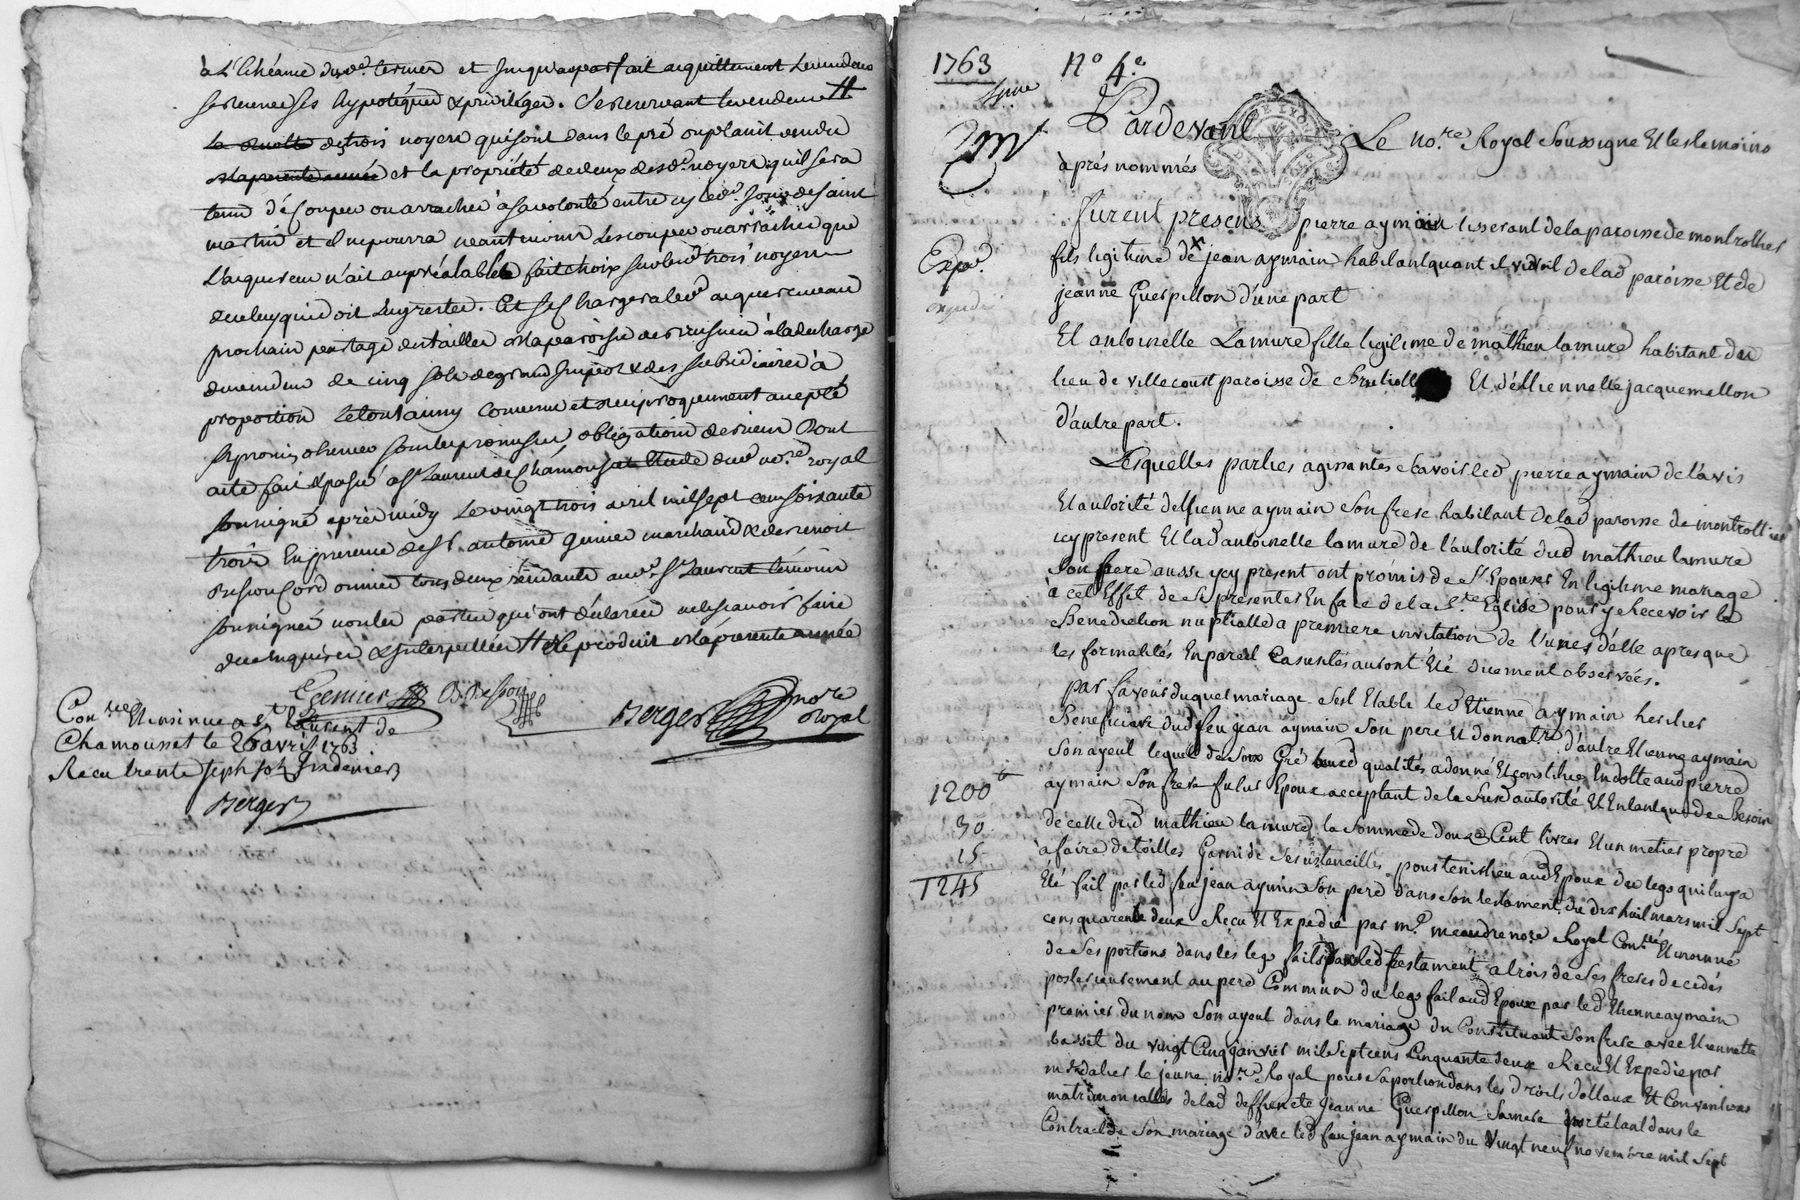 à L'échéance dusd. termes et jusqu'au parfait acquittement le vendeur
se reserve ses hypotéques & privileges. se reservant le vendeur #
la recolte de trois noyers qui sont dans le pré ou planit vendu
la presente année et la propriété de deux desd. noyers qu'il sera
tenu découper ou arracher à sa volonté entre cy le d. jour de saint
martin et il ne pourra neantmoins les couper ou arracher que
L'aquereur n'ait aupréalable fait choix sur les d. trois noyers
de celuy qui doit luy rester. Et se chargera led. aquereur au
prochain partage des tailles de la paroisse à la decharge
du vendeur de cinq sols de grand impôt & des subsidiaires à
proportion Le tout ainsy convenu et reciproquement accepté
promis observer sous les promesses obligations de rien Dont
acte fait & passé a St Laurent de Chamousset Etude dud. no.re royal
soussigné après midy Le vingt trois avril mil sept cens soixante
trois En presence de S. antoine genier marchand & de benoit
cordonnier tous deux résidants aud. St Laurent témoins
soussignés non les parties qui ont déclaré ne le scavoir faire
de ce enquises & interpellées # le produit de la presente année
Genier
Berger no.re Royal
Con.lee & insinué a St Laurent de
Chamousset le 26 avril 1763
Recu trente sept sols six deniers
Berger
1763
N° 4.e
Pardevant Le no.re Royal Soussigné Et les temoins
àprés nommés
furent presens pierre aymain tisserant de la paroisse de montrotties
fils legitime de jean aymain habitant quant il vivoit delad paroisse Et de
jeanne Guespillon d'une part
Exp.e
Et antoinelle Lamure fille legitime de mathieu lamure habitant du
lieu de villecourt paroisse de Et d'éstiennette jacquemetton
d'autre part.
Lesquelles parties agissantes scavoir led pierre aymain de l'avis
Et autorité d'estienne aymain son frere habitant delad paroisse de montrotties
icy present Et lad antoinelle lamure de l'autorité dud mathieu lamure
son pere aussi ycy present ont promis de s'Epouser En legitime mariage
à cet Effet de se presenter En face de la S.te Eglise pour y Recevoir la
Benediction nuptialle a premiere invitation de l'une d'elle apres que
les formalités En pareil Cas usités auront Eté duement observées.
par faveur duquel mariage s'est Etabli led Etienne aymain heritier
Beneficiaire dud feu jean aymain son pere Et donnat.re d'autre Etienne aymain
son ayeul lequel de son Gré ausd qualités a donné Et constitué En dotte aud pierre
aymain son frere futur Epoux acceptant de la susd autorité Et En tant que de Besoin
de celle dud mathieu lamure la somme de douze Cent livres Et un metier propre
à faire de toilles Garni de ses ustencilles pour tenir lieu aud Epoux du legs qui luy a
Eté fait par led feu jean aymain son pere dans son testament du dix huit mars mil sept
cens quarente deux Recu Et Expedié par m.e meandre no.re Royal Con.lé Et insinué
de ses portions dans les legs faits par led testament a trois de ses freres decedés
posterieurement au pere Commun du legs fait aud Epoux par led Etienne aymain
premier du nom son ayeul dans le mariage du Constituant son frere avec Etiennette
basset du vingt Cinq janvier mil sept cens Cinquante deux Recu Et Expedié par
m.e dalies le jeune no.re Royal pour sa portion dans les droits dottaux Et Conventions
matrimonialles delad deffuncte jeanne Guespillon sa mere portés tant dans le
Contract de son mariage d'avec led feu jean aymain du vingt neuf novembre mil sept
1200 ₶
30
15
1245